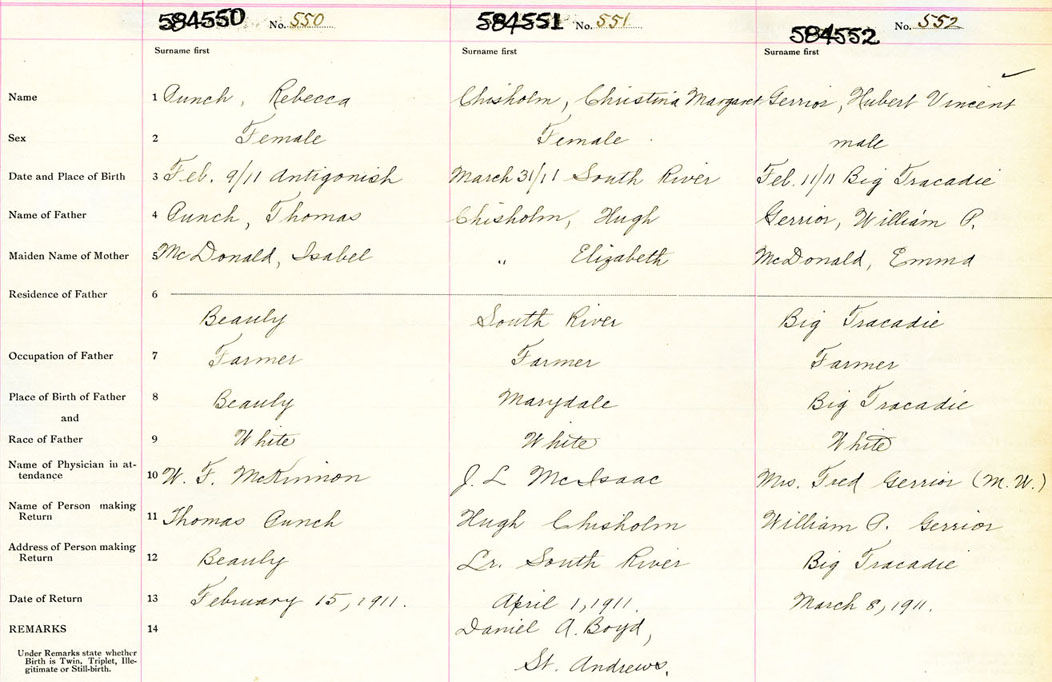 584550 No. 550 584551 No. 551 584552 No. 552
Surname first Surname first Surname first
Name 1 Punch, Rebecca Chisholm, Christina Margaret Gerrior, Hubert Vincent
Sex 2 Female Female male
Date and Place of Birth 3 Feb. 9/11 Antigonish March 31/11 South River Feb. 11/11 Big Tracadie
Name of Father 4 Punch, Thomas Chisholm, Hugh Gerrior, William P.
Maiden Name of Mother 5 McDonald, Isabel " Elizabeth McDonald, Emma
Residence of Father 6
Beauly South River Big Tracadie
Occupation of Father 7 Farmer Farmer Farmer
Place of Birth of Father 8 Beauly Marydale Big Tracadie
and
Race of Father 9 White White White
Name of Physician in at-
tendance 10 W. F. McKinnon J. L McIsaac Mrs. Fred Gerrior (M. W.)
Name of Person making
Return 11 Thomas Punch Hugh Chisholm William P. Gerrior
Address of Person making
Return 12 Beauly Lr. South River Big Tracadie
Date of Return 13 February 15, 1911. April 1, 1911. March 8, 1911.
REMARKS 14 Daniel A. Boyd,
Under Remarks state whether
Birth is Twin, Triplet, Ille-
gitimate or Still-birth.
St. Andrews.